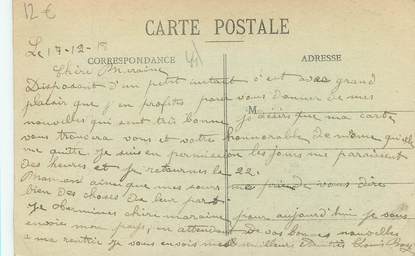 12 €
CARTE POSTALE
Le 17-12-18
CORRESPONDANCE
ADRESSE
Chère Maraine
Disposant d'un petit instant c'est avec grand
plaisir que j'en profite pour vous donner de mes
nouvelles qui sont très bonne je désirs que ma carte
M
vous trouvera vous et votre honorable de même qu'elle
me quitte je suis en permission les jours me paraissent
des heures et je retournes le 22.
Maman ainsi que mes seurs me prie de vous dire
bien des choses de leur part
je termines chère maraine pour aujourd'hui je vous
envoies mon pays, en attendant de vos bonnes nouvelles
a ma rentrer je vous envois mes meilleur Louis